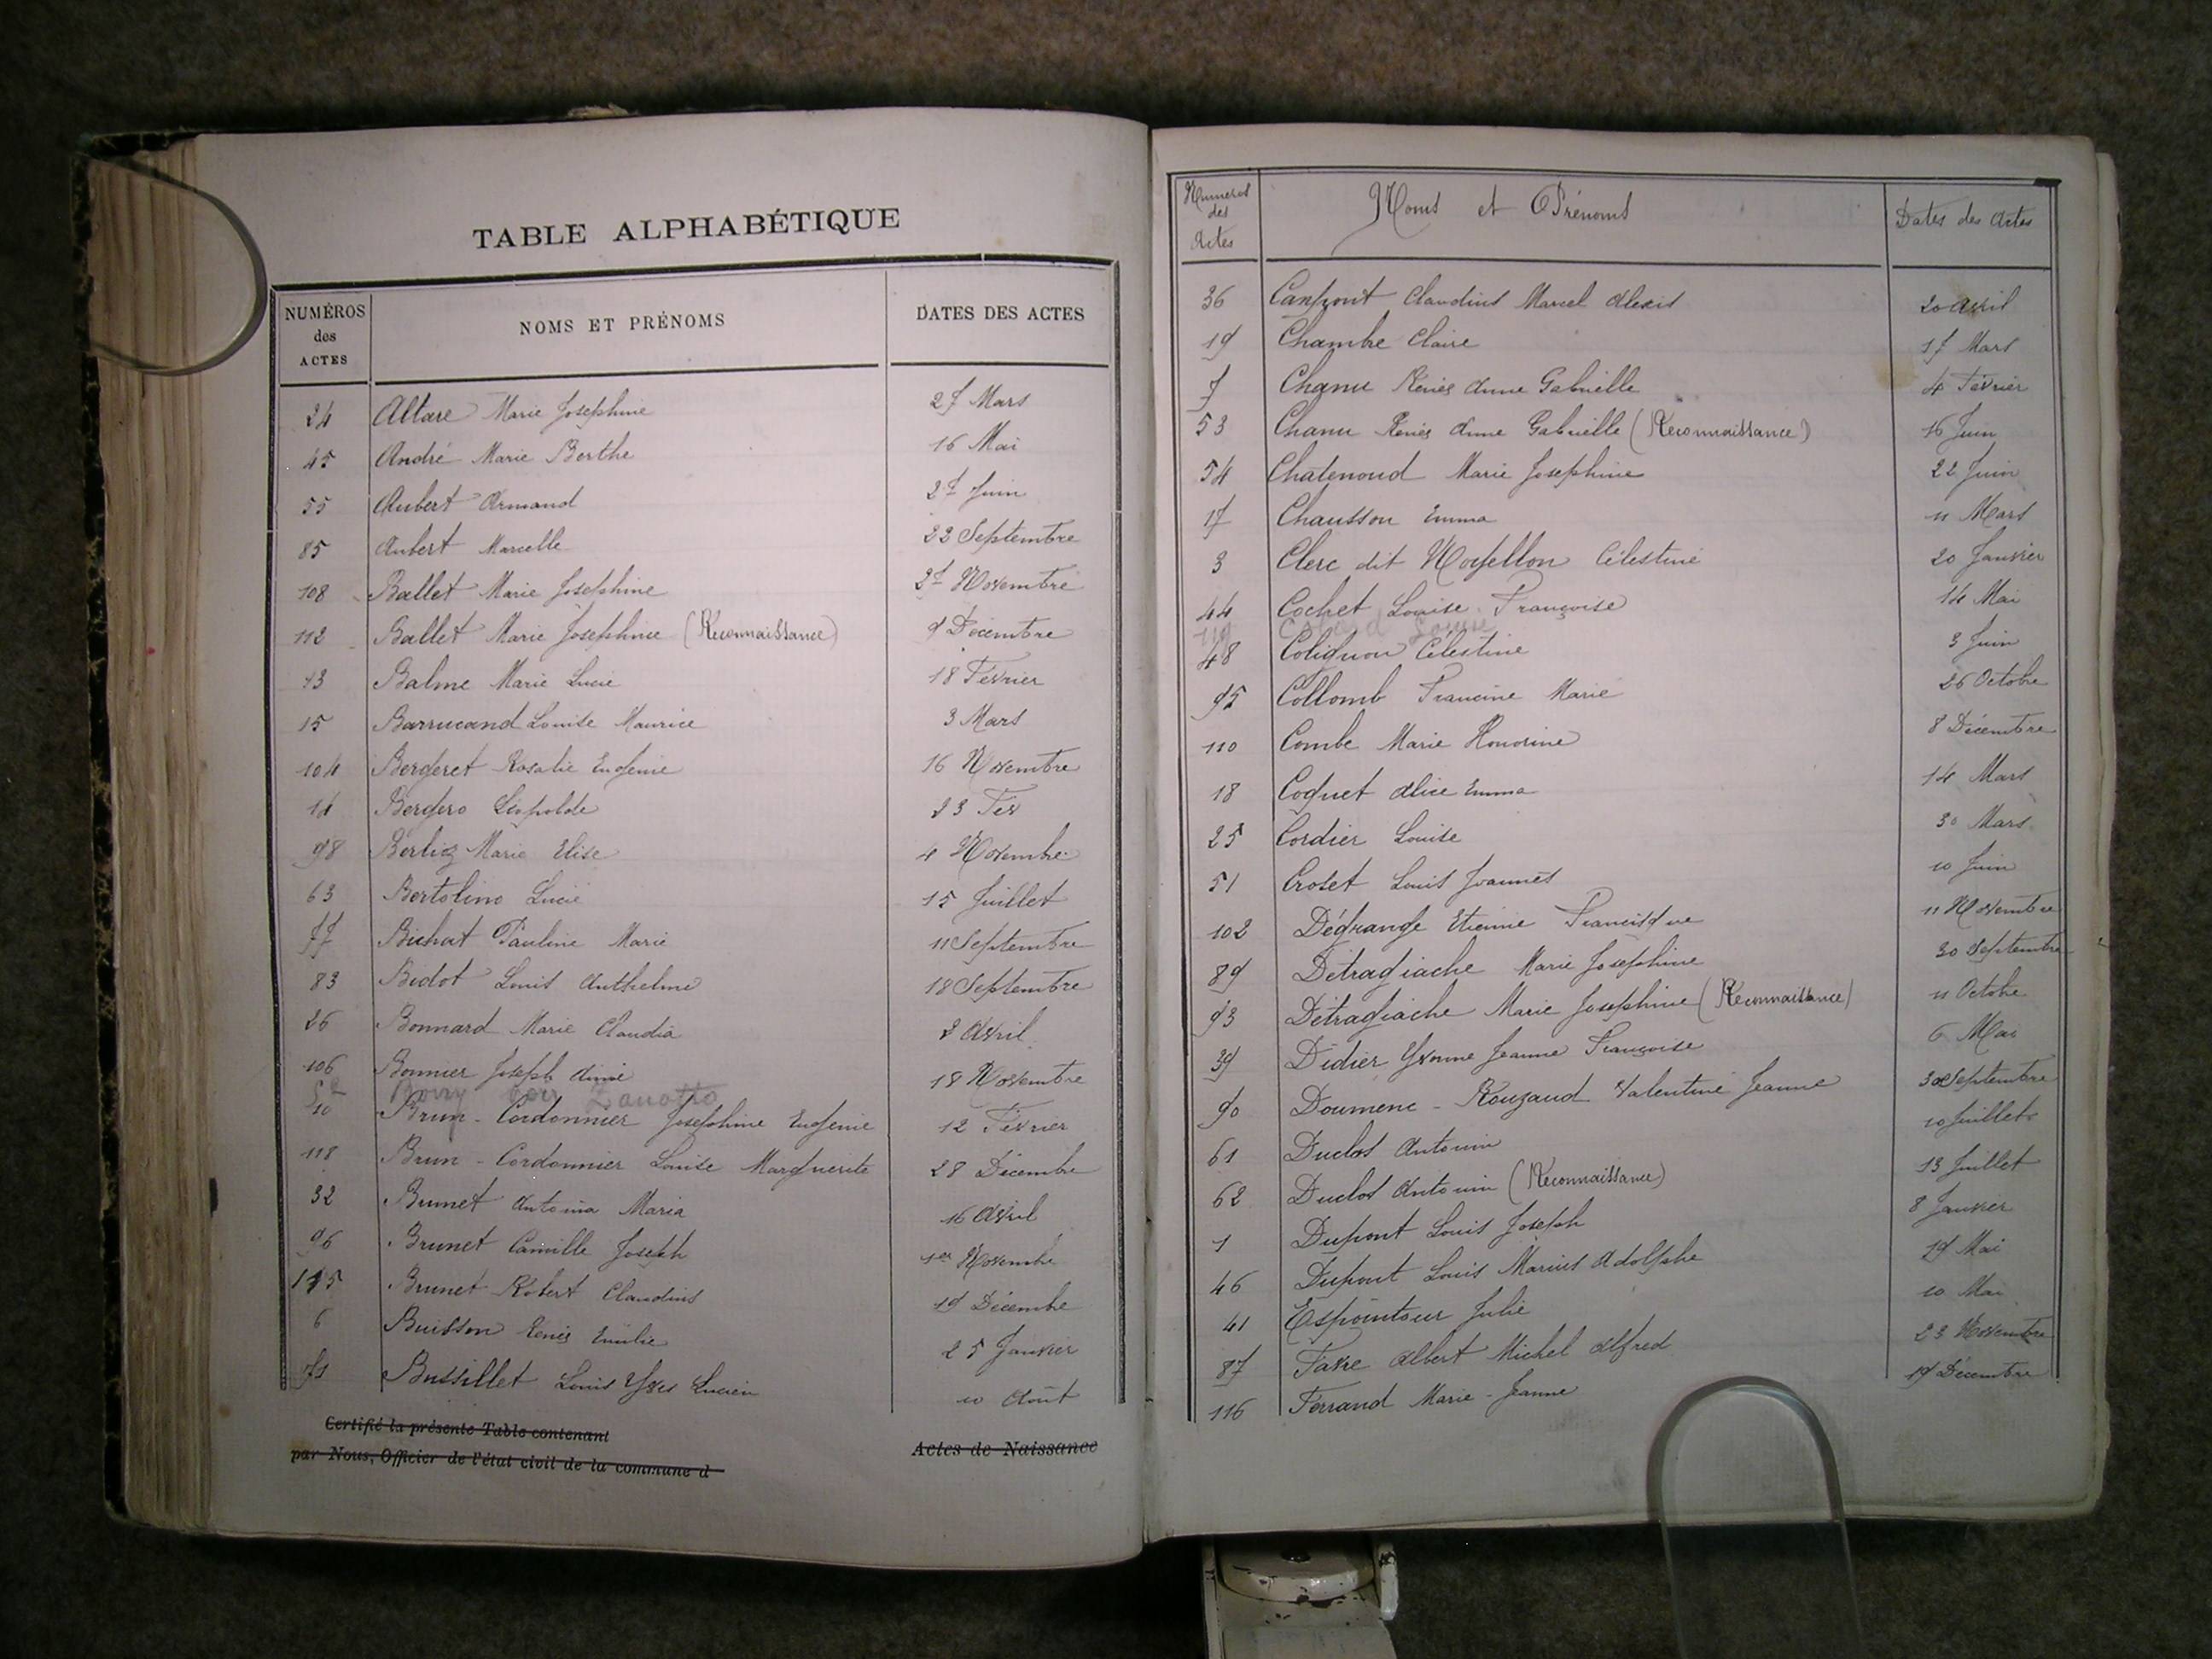 TABLE ALPHABÉTIQUE
NUMÉROS des ACTES NOMS ET PRÉNOMS DATES DES ACTES
24 Altare Marie Josephine 27 Mars
45 André Marie Berthe 16 Mai
55 Aubert Armand 27 Juin
85 Aubert Marcelle 22 Septembre
108 Ballet Marie Josephine 27 Novembre
112 Ballet Marie Josephine (Reconnaissance) 9 Décembre
13 Balme Marie Lucie 18 Février
15 Barrucand Louise Maurice 3 Mars
104 Bergeret Rosalie Eugenie 16 Novembre
14 Bergero Léopolde 23 Fév
98 Berlioz Marie Elise 4 Novembre
63 Bertolino Lucie 15 Juillet
77 Bichat Pauline Marie 11 Septembre
83 Bidot Louis Anthelme 18 Septembre
26 Bonnard Marie Claudia 2 Avril
106 Bonnier Joseph Aimé 18 Novembre
voir Zanotto
10 Brun-Cordonnier Josephine Eugenie 12 Février
118 Brun-Cordonnier Louise Marguerite 28 Décembre
32 Brunet Antonia Maria 16 Avril
96 Brunet Camille Joseph 1er Novembre
115 Brunet Robert Claudius 19 Décembre
6 Buisson Renée Emilie 25 Janvier
71 Bussillet Louis Yves Lucien 10 Août
Certifié la présente Table contenant Actes de Naissance
par Nous, Officier de l'état civil de la commune d
Numéros des Actes Noms et Prénoms Dates des Actes
36 Canpont Claudius Marcel Alexis 20 Avril
19 Chambe Claire 17 Mars
7 Chanu Renée Anne Gabrielle 4 Février
53 Chanu Renée Anne Gabrielle (Reconnaissance) 16 Juin
54 Chatenoud Marie Josephine 22 Juin
17 Chausson Emma 11 Mars
3 Clerc dit Célestine 20 Janvier
44 Cochet Louise Françoise 14 Mai
119 Louise
48 Colignon Célestine 3 Juin
95 Collomb Francine Marie 26 Octobre
110 Combe Marie Honorine 8 Décembre
18 Coquet Alice Emma 14 Mars
25 Cordier Louise 30 Mars
51 Croset Louis Joannès 10 Juin
102 Dégrange Etienne Francisque 11 Novembre
89 Détragiache Marie Josephine 30 Septembre
93 Détragiache Marie Josephine (Reconnaissance) 11 Octobre
39 Didier Yvonne Jeanne Françoise 6 Mai
90 Doumenc-Rouzaud Valentine Jeanne 30 Septembre
61 Duclos Antonin 10 Juillet
62 Duclos Antonin (Reconnaissance) 13 Juillet
1 Dupont Louis Joseph 8 Janvier
46 Dupont Louis Marius Adolphe 19 Mai
41 Espointour Julie 10 Mai
87 Favre Albert Michel Alfred 23 Novembre
116 Ferrand Marie-Jeanne 19 Décembre